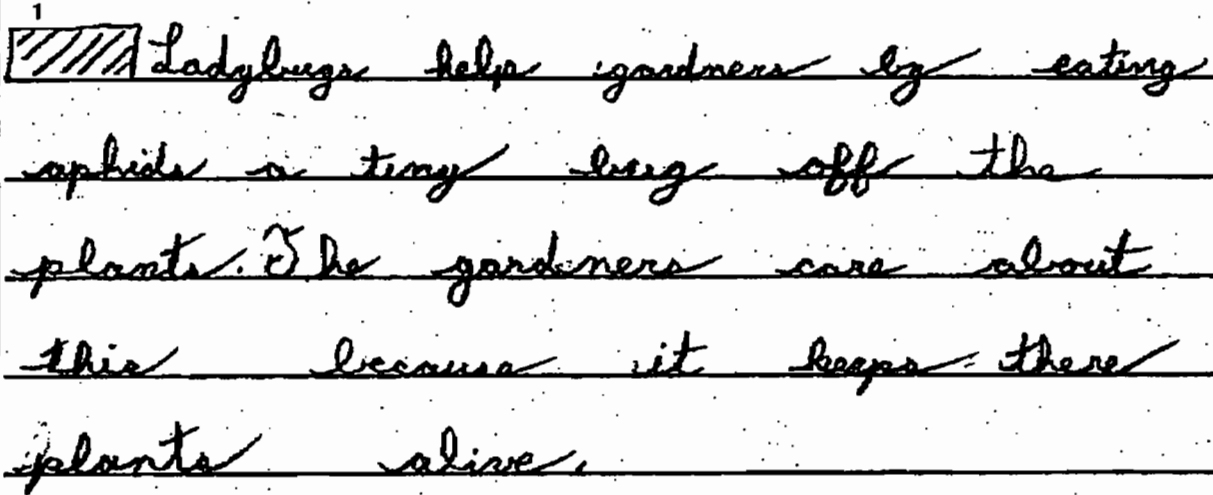 1
Ladybugs help gardners by eating
aphids a tiny bug off the
plants. The gardners care about
this because it keeps there
plants alive.